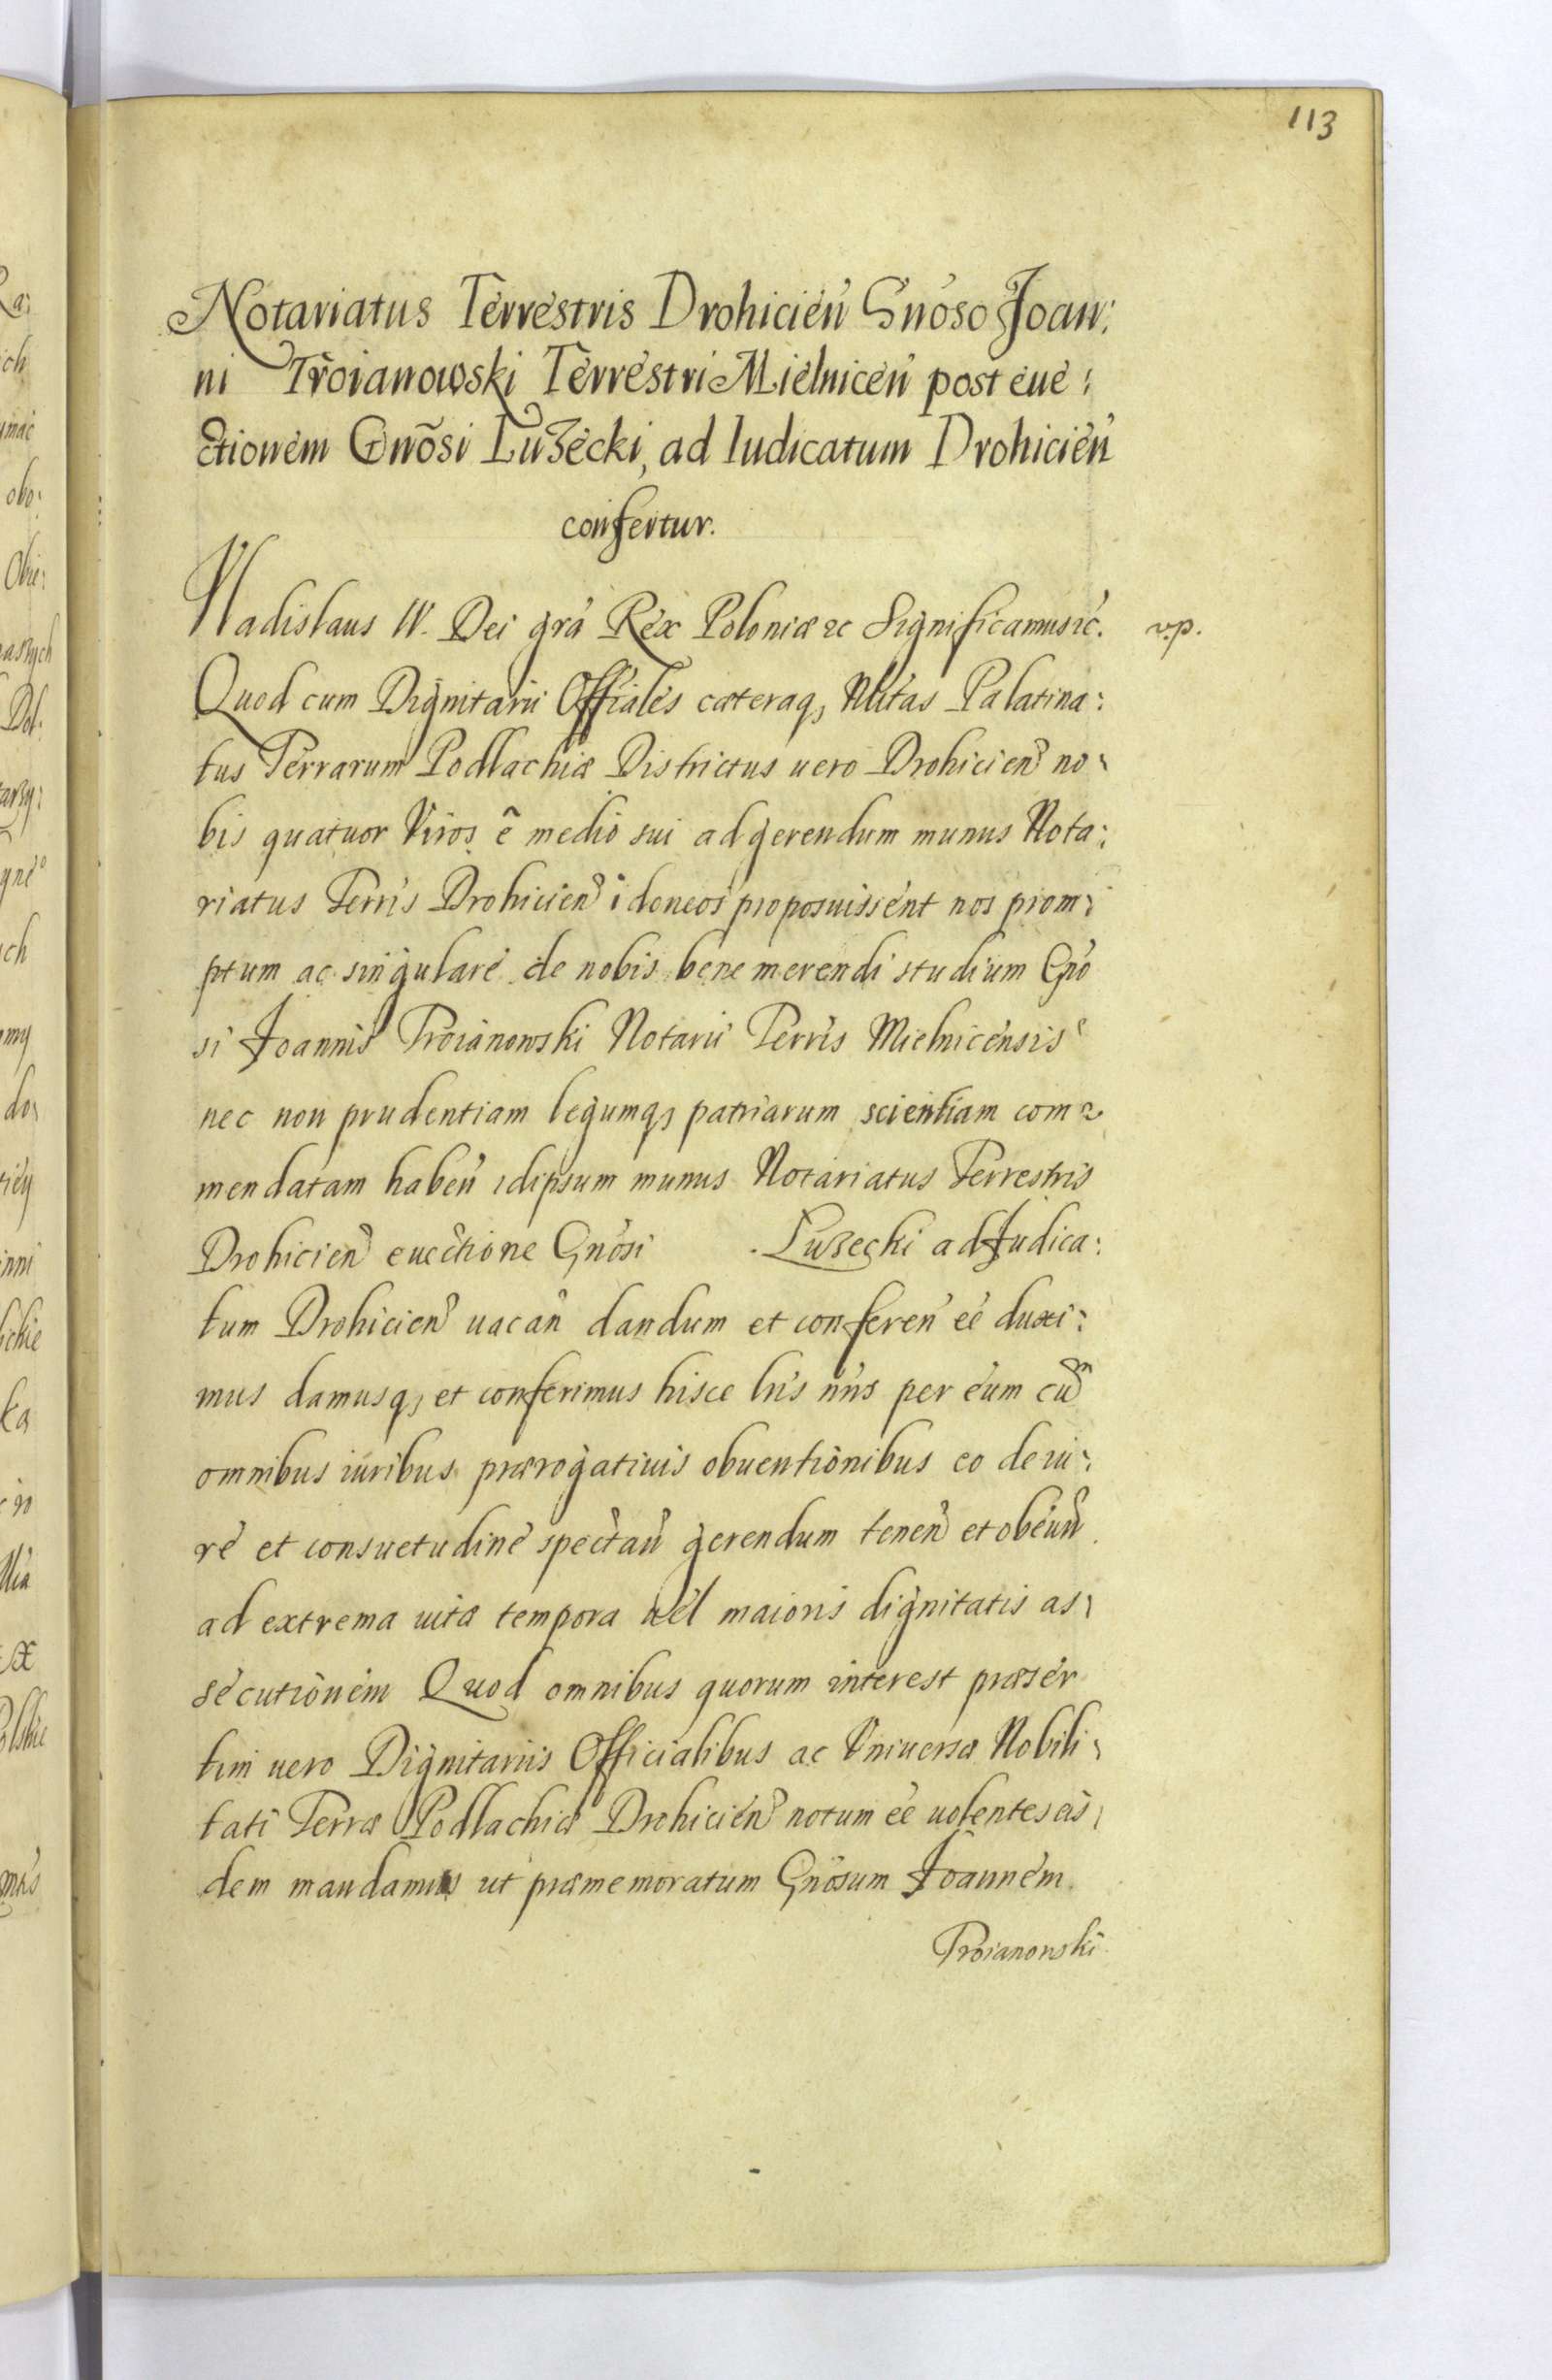 113
Notariatus Terrestris Drohicień Gnoso Joan:
ni Troianowski Terrestri Mielniceń post eue:
ctionem Gnõsi Luzecki, ad Iudicatum Drohicień
confertur.
Vladislaus IV. Dei grã Rex Poloniæ &c Significamus &c. v.p.
Quod cum Dignitarii Offiales cæteraq, Nlitas Palatina:
tus Terrarum Podlachiæ Districtus uero Drohicień no:
bis quatuor Viros ẽ medio sui ad gerendum munus Nota:
riatus Terris Drohicień idoneos proposuissent nos prom:
ptum ac singulare de nobis bene merendi studium Gno
si Joannis Troianowski Notarii Terris Mielnicensis
nec non prudentiam legumq, patriarum scientiam com:
mendatam habeń idipsum munus Notariatus Terrestris
Drohicień euectione Gnosi Luzecki ad Judica:
tum Drohicień uacań dandum et confereń eé duxi:
mus damusq, et conferimus hisce lris nris per eum cũ
omnibus iuribus prærogatiuis obuentionibus eo de iu:
re et consuetudine spectań gerendum teneń et obeuń
ad extrema uitæ tempora uel maioris dignitatis as:
secutionem Quod omnibus quorum interest præser
tim uero Dignitariis Officialibus ac Vniuersæ Nobili:
tati Terræ Podlachiæ Drohicień notum eé uolentes eis:
dem mandamus ut præmemoratum Gnosum Joannem
Troianowski